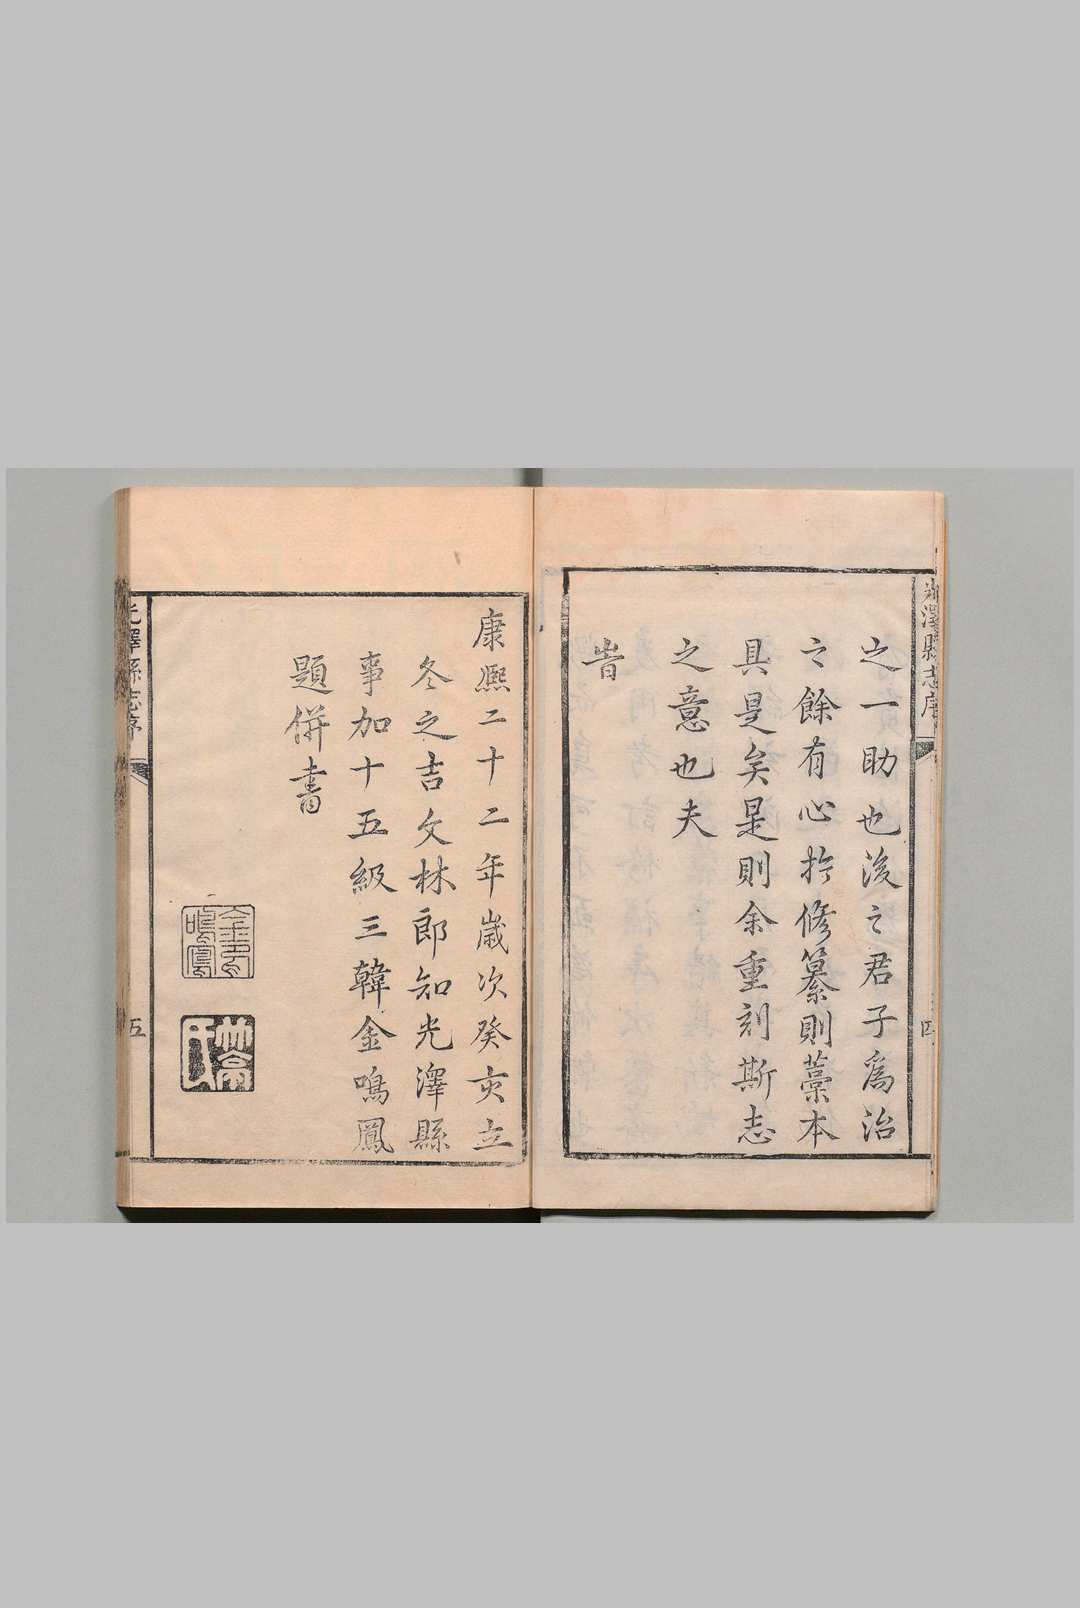 光澤縣志序
四
之一助也後之君子爲治
之餘有心於修纂則藁本
具是矣是則余重刻斯志
之意也夫
旹
康熙二十二年歲次癸亥立
冬之吉文林郎知光澤縣
事加十五級三韓金鳴鳳
題併書
金印鳴鳳
光澤縣志序
五